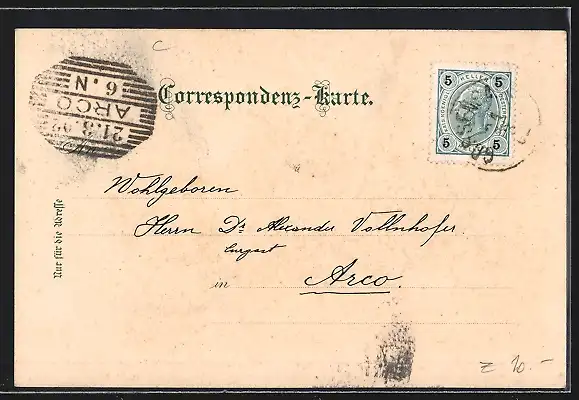 Correspondenz-Karte.
6. N
ARCO
21.3.02
5 HELLER 5
5 5
Nur für die Adresse
Wohlgeboren
Herrn Dr Alexander Vollnhofer
Curgast
in Arco.
20.-